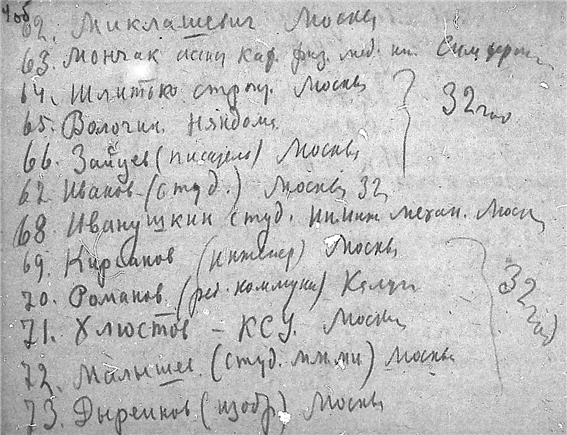 4 об
62. Миклашевич Москва
63. Мончак асси. каф. физ. мед. ин. Симферо
64. Шлитько строи. Москва
32 год
65. Вологин. Няндома
66. Зайцев (писатель) Москва
67. Иванов (студ.) Москва 32
68. Иванушкин студ. механ. Моск
69. Кирсанов (инженер) Москва
70. Романов (ред. коммуна) Калуга
32 год
71. Хлюстов – КСУ. Москва
72. Малышев. (студ. ммми) Москва
73. Дыренков (изобр) Москва